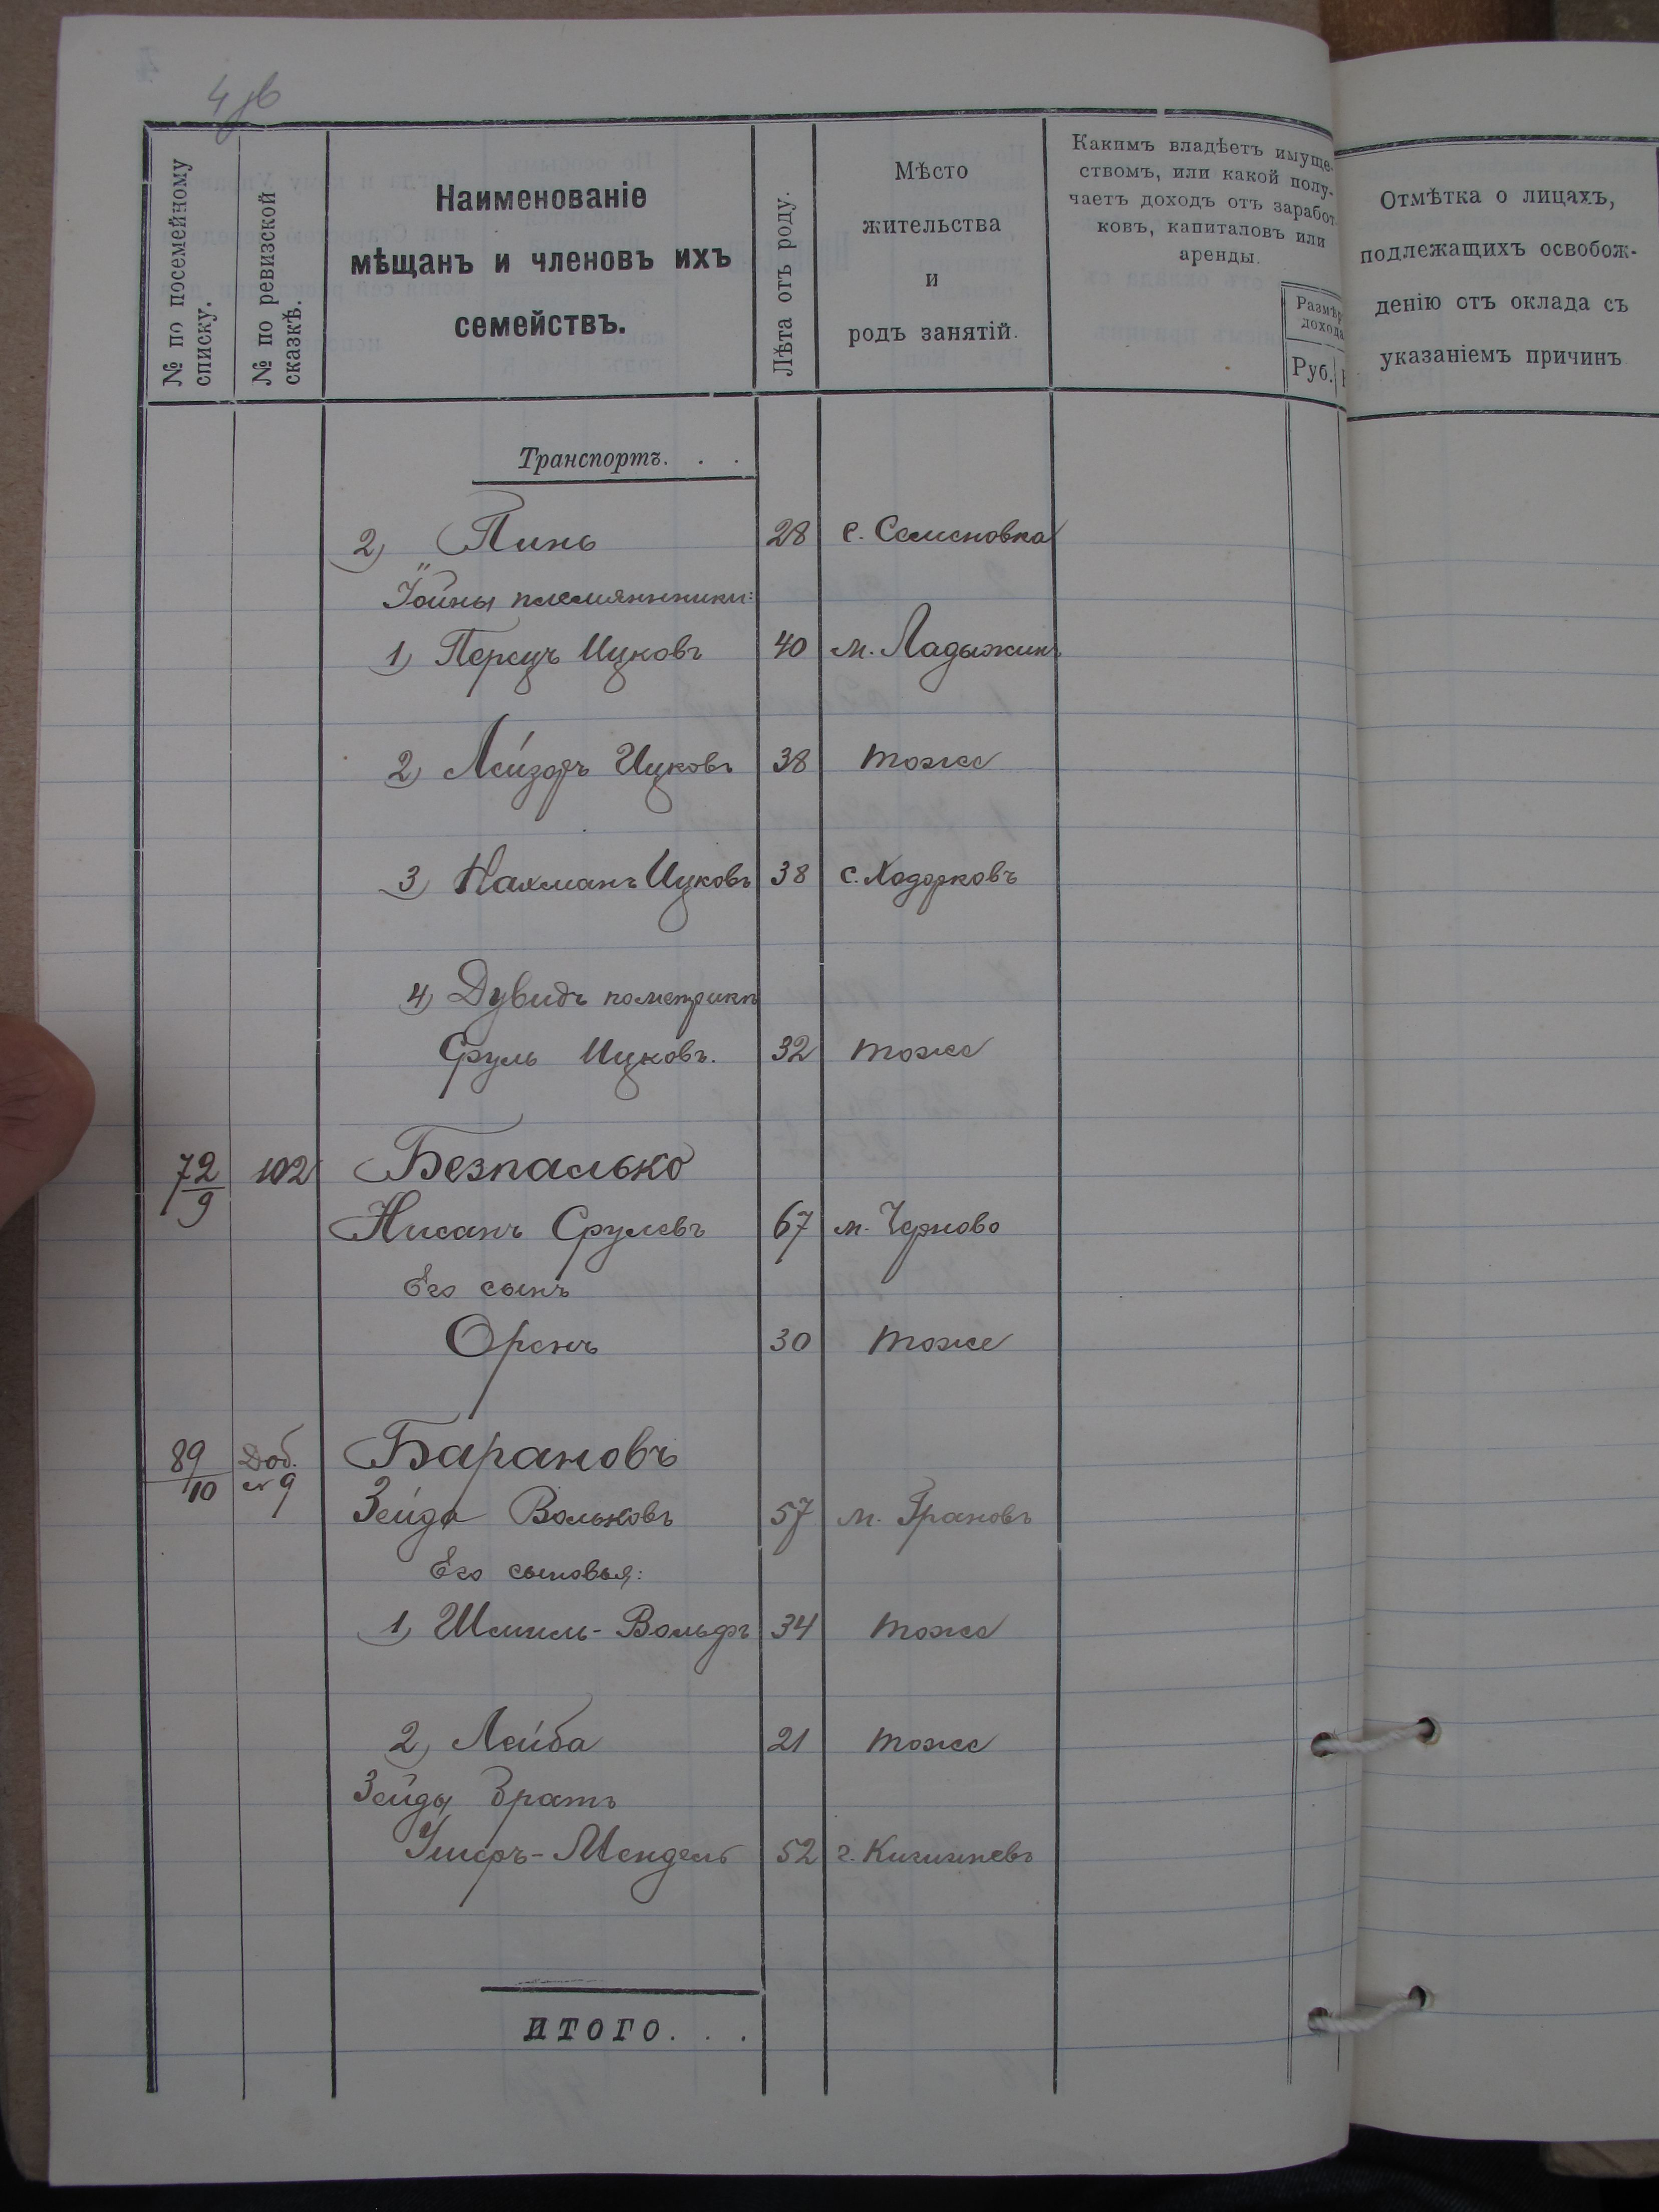 4 об
№ по посемейному списку.
№ по ревизской сказкѣ.
Наименованіе
мѣщанъ и членовъ ихъ
семействъ.
Лѣта отъ роду.
Мѣсто
жительства
и
родъ занятій.
Какимъ владѣетъ имуще-
ствомъ, или какой полу-
чаетъ доходъ отъ заработ-
ковъ, капиталовъ или
аренды.
Размѣр
дохода
Руб.
Отмѣтка о лицахъ,
подлежащихъ освобож-
денію отъ оклада съ
указаніемъ причинъ
Транспортъ. . .
2) Пинь 28 с. Семеновка
Іойны племянники:
1) Перецъ Ицковъ 40 м. Ладыжинъ
2) Лейзоръ Ицковъ 38 тоже
3) Нахманъ Ицковъ 38 с. Ходорковъ
4) Дувидъ пометрики
Сруль Ицковъ. 32 тоже
72/9 102 Безпалько
Нисанъ Срулевъ 67 м. Черново
Его сынъ
Оренъ 30 тоже
89/10 Доб. № 9 Барановъ
Зейда Вольковъ 57 м. Грановъ
Его сыновья:
1) Шмиль-Вольфъ 34 тоже
2) Лейба 21 тоже
Зейды братъ
Ушеръ-Мендель 52 г. Кишиневъ
ИТОГО. . .